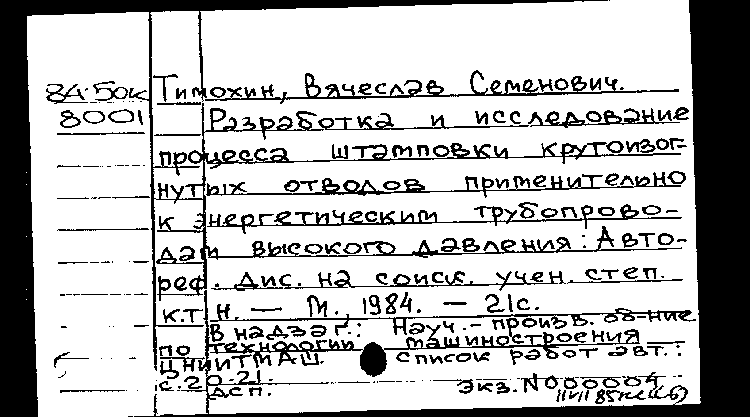 84-50к Тимохин, Вячеслав Семенович.
8001 Разработка и исследование
процесса штамповки крутоизог-
нутых отводов применительно
к энергетическим трубопрово-
дам высокого давления: Авто-
реф. дис. на соиск. учен. степ.
к.т.н. — М., 1984. — 21с.
В надзаг.: Науч.-произв. об-ние
по технологии машиностроения
ЦНИИТМАШ. Список работ авт.:
с.20-21.
ДСП. Экз. N000004